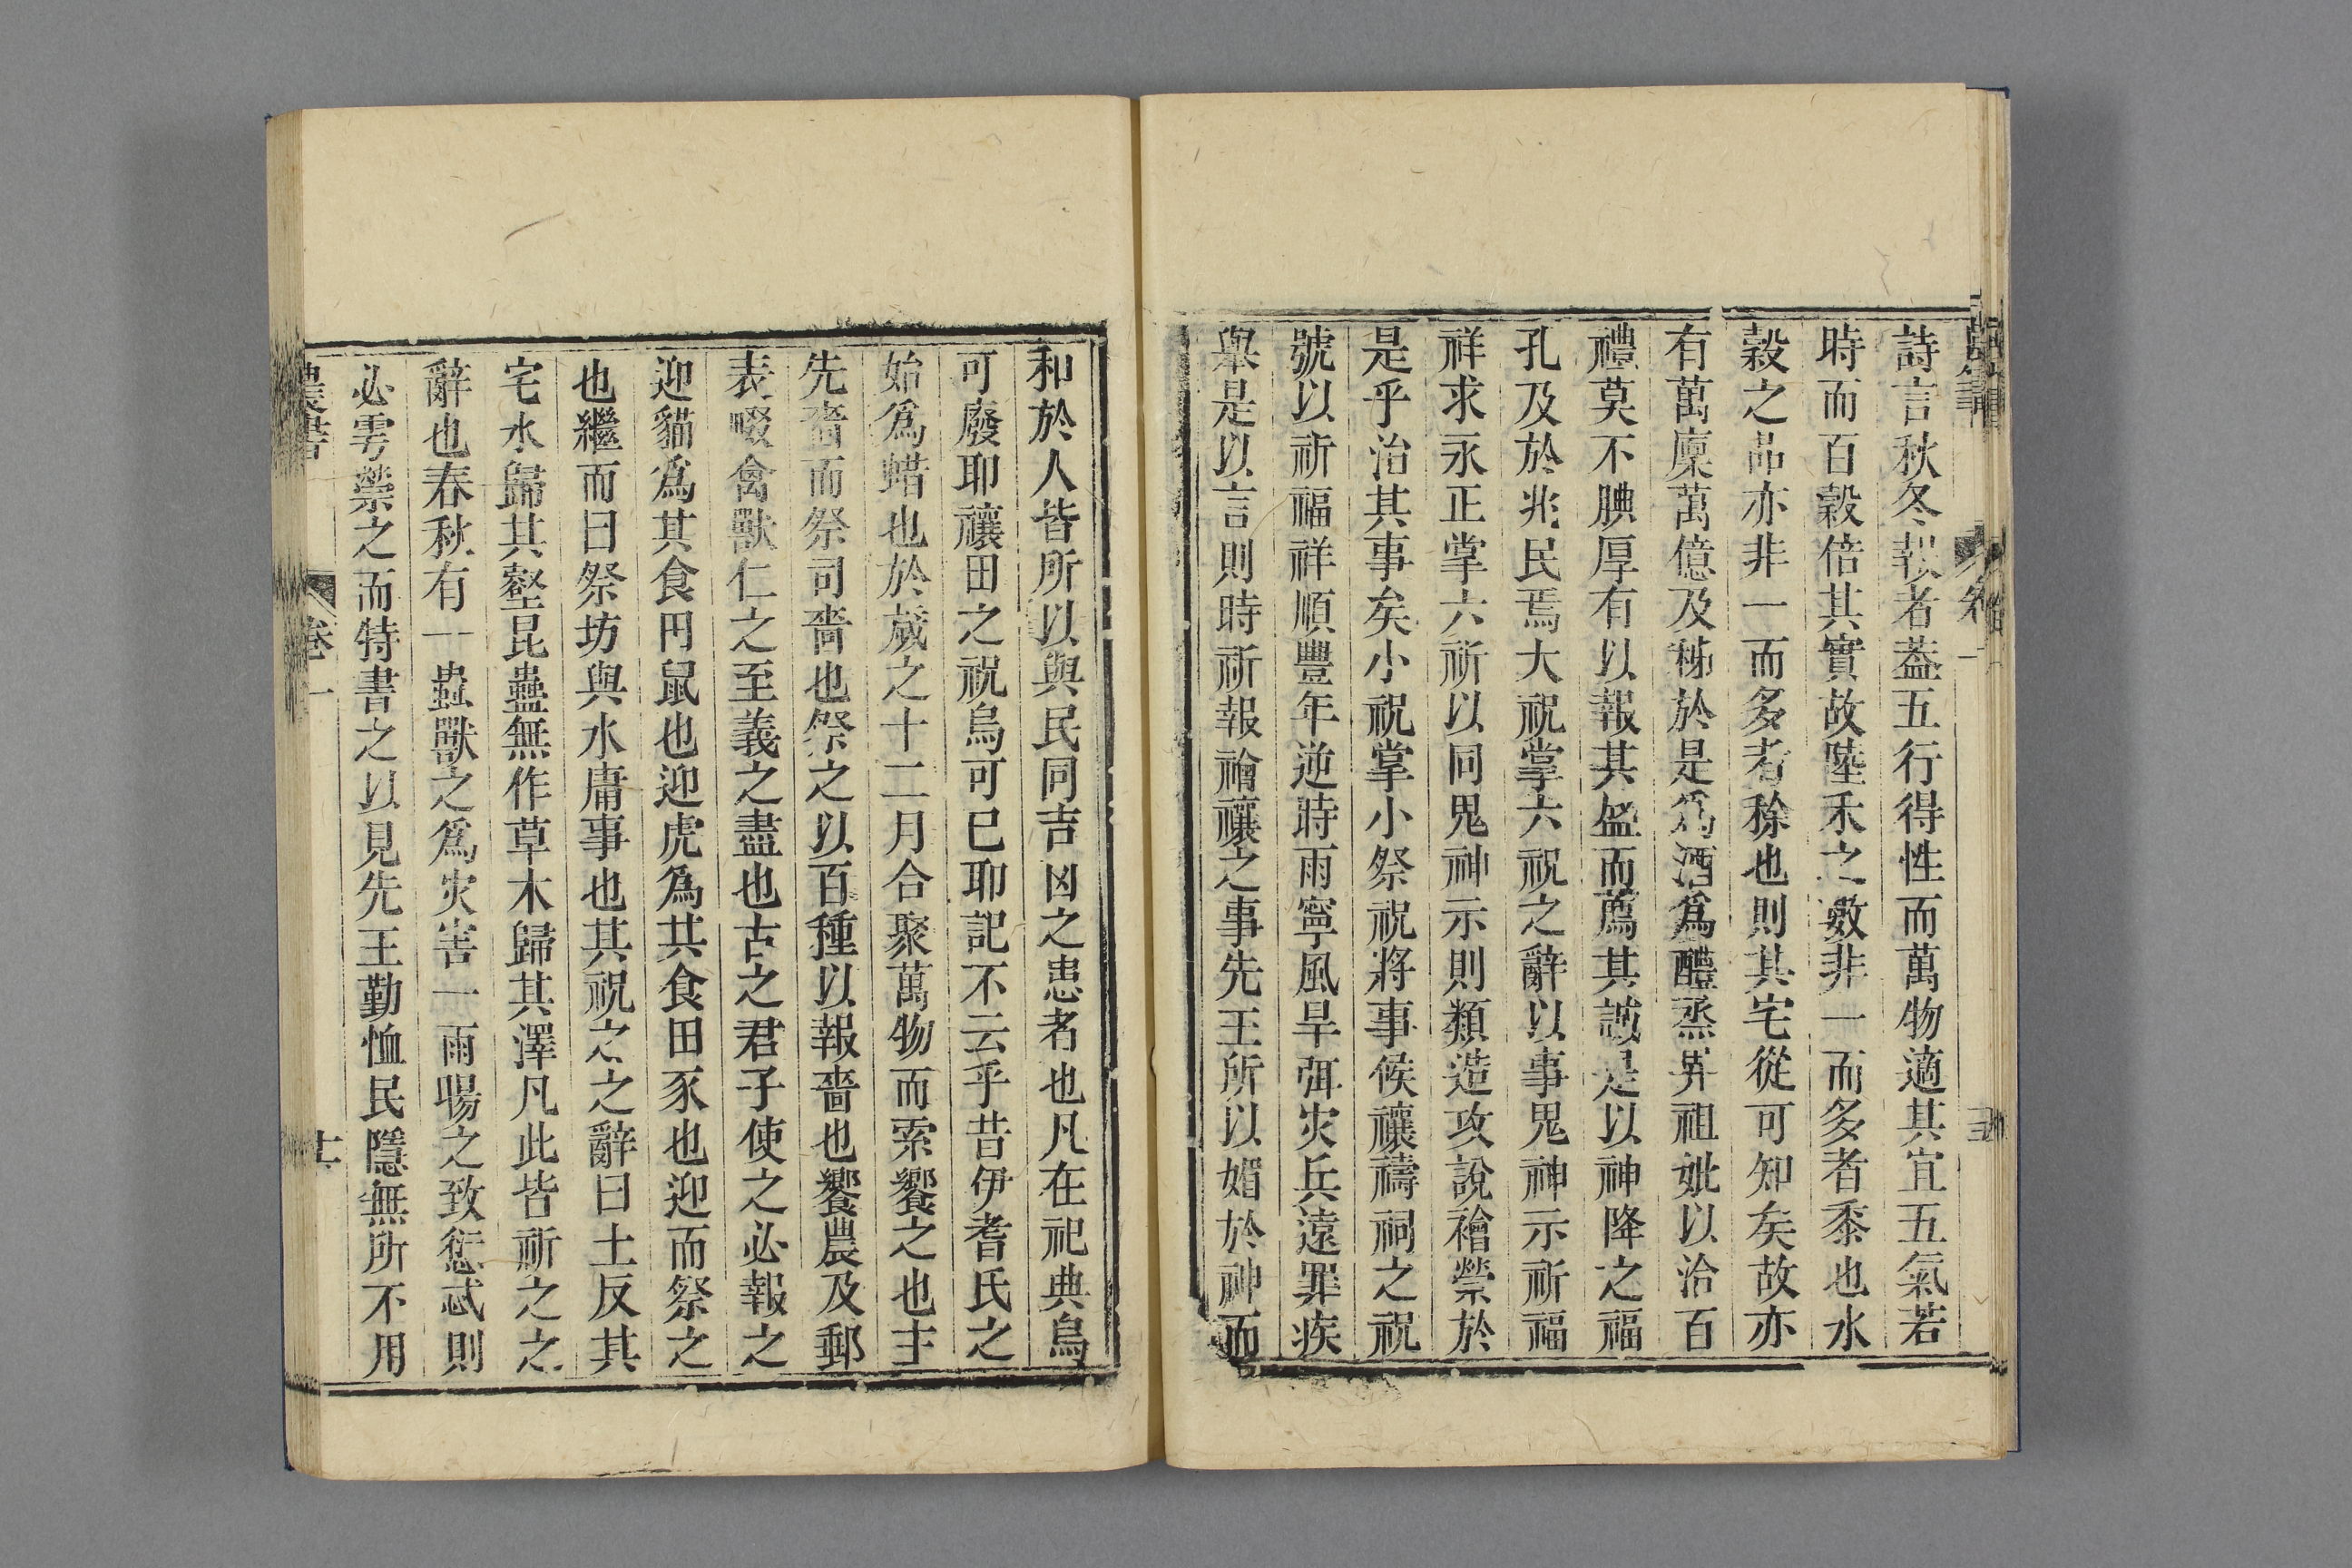 詩言秋冬報者葢五行得性而萬物適其宜五氣若
時而百穀倍其實故陸禾之數非一而多者黍也水
穀之品亦非一而多者稌也則其宅從可知矣故亦
有萬廩萬億及秭於是爲酒爲醴烝畀祖妣以洽百
禮莫不腆厚有以報其盛而薦其誠是以神降之福
孔及於兆民焉大祝掌六祝之辭以事鬼神示祈福
祥求永正掌六祈以同鬼神示則類造攻說禬禜於
是乎治其事矣小祝掌小祭祝將事候禳禱祠之祝
號以祈福祥順豐年逆時雨寧風旱弭灾兵遠罪疾
舉是以言則時祈報禬禳之事先王所以媚於神而
和於人皆所以與民同吉凶之患者也凡在祀典烏
可廢耶禳田之祝烏可已耶記不云乎昔伊耆氏之
始爲蜡也於歲之十二月合聚萬物而索饗之也主
先嗇而祭司嗇也祭之以百種以報嗇也饗農及郵
表畷禽獸仁之至義之盡也古之君子使之必報之
迎貓爲其食田鼠也迎虎爲其食田豕也迎而祭之
也繼而曰祭坊與水庸事也其祝之之辭曰土反其
宅水歸其壑昆蟲無作草木歸其澤凡此皆祈之之
辭也春秋有一蟲獸之爲灾害一雨暘之致愆忒則
必雩禜之而特書之以見先王勤恤民隱無所不用
農書
卷一
十二